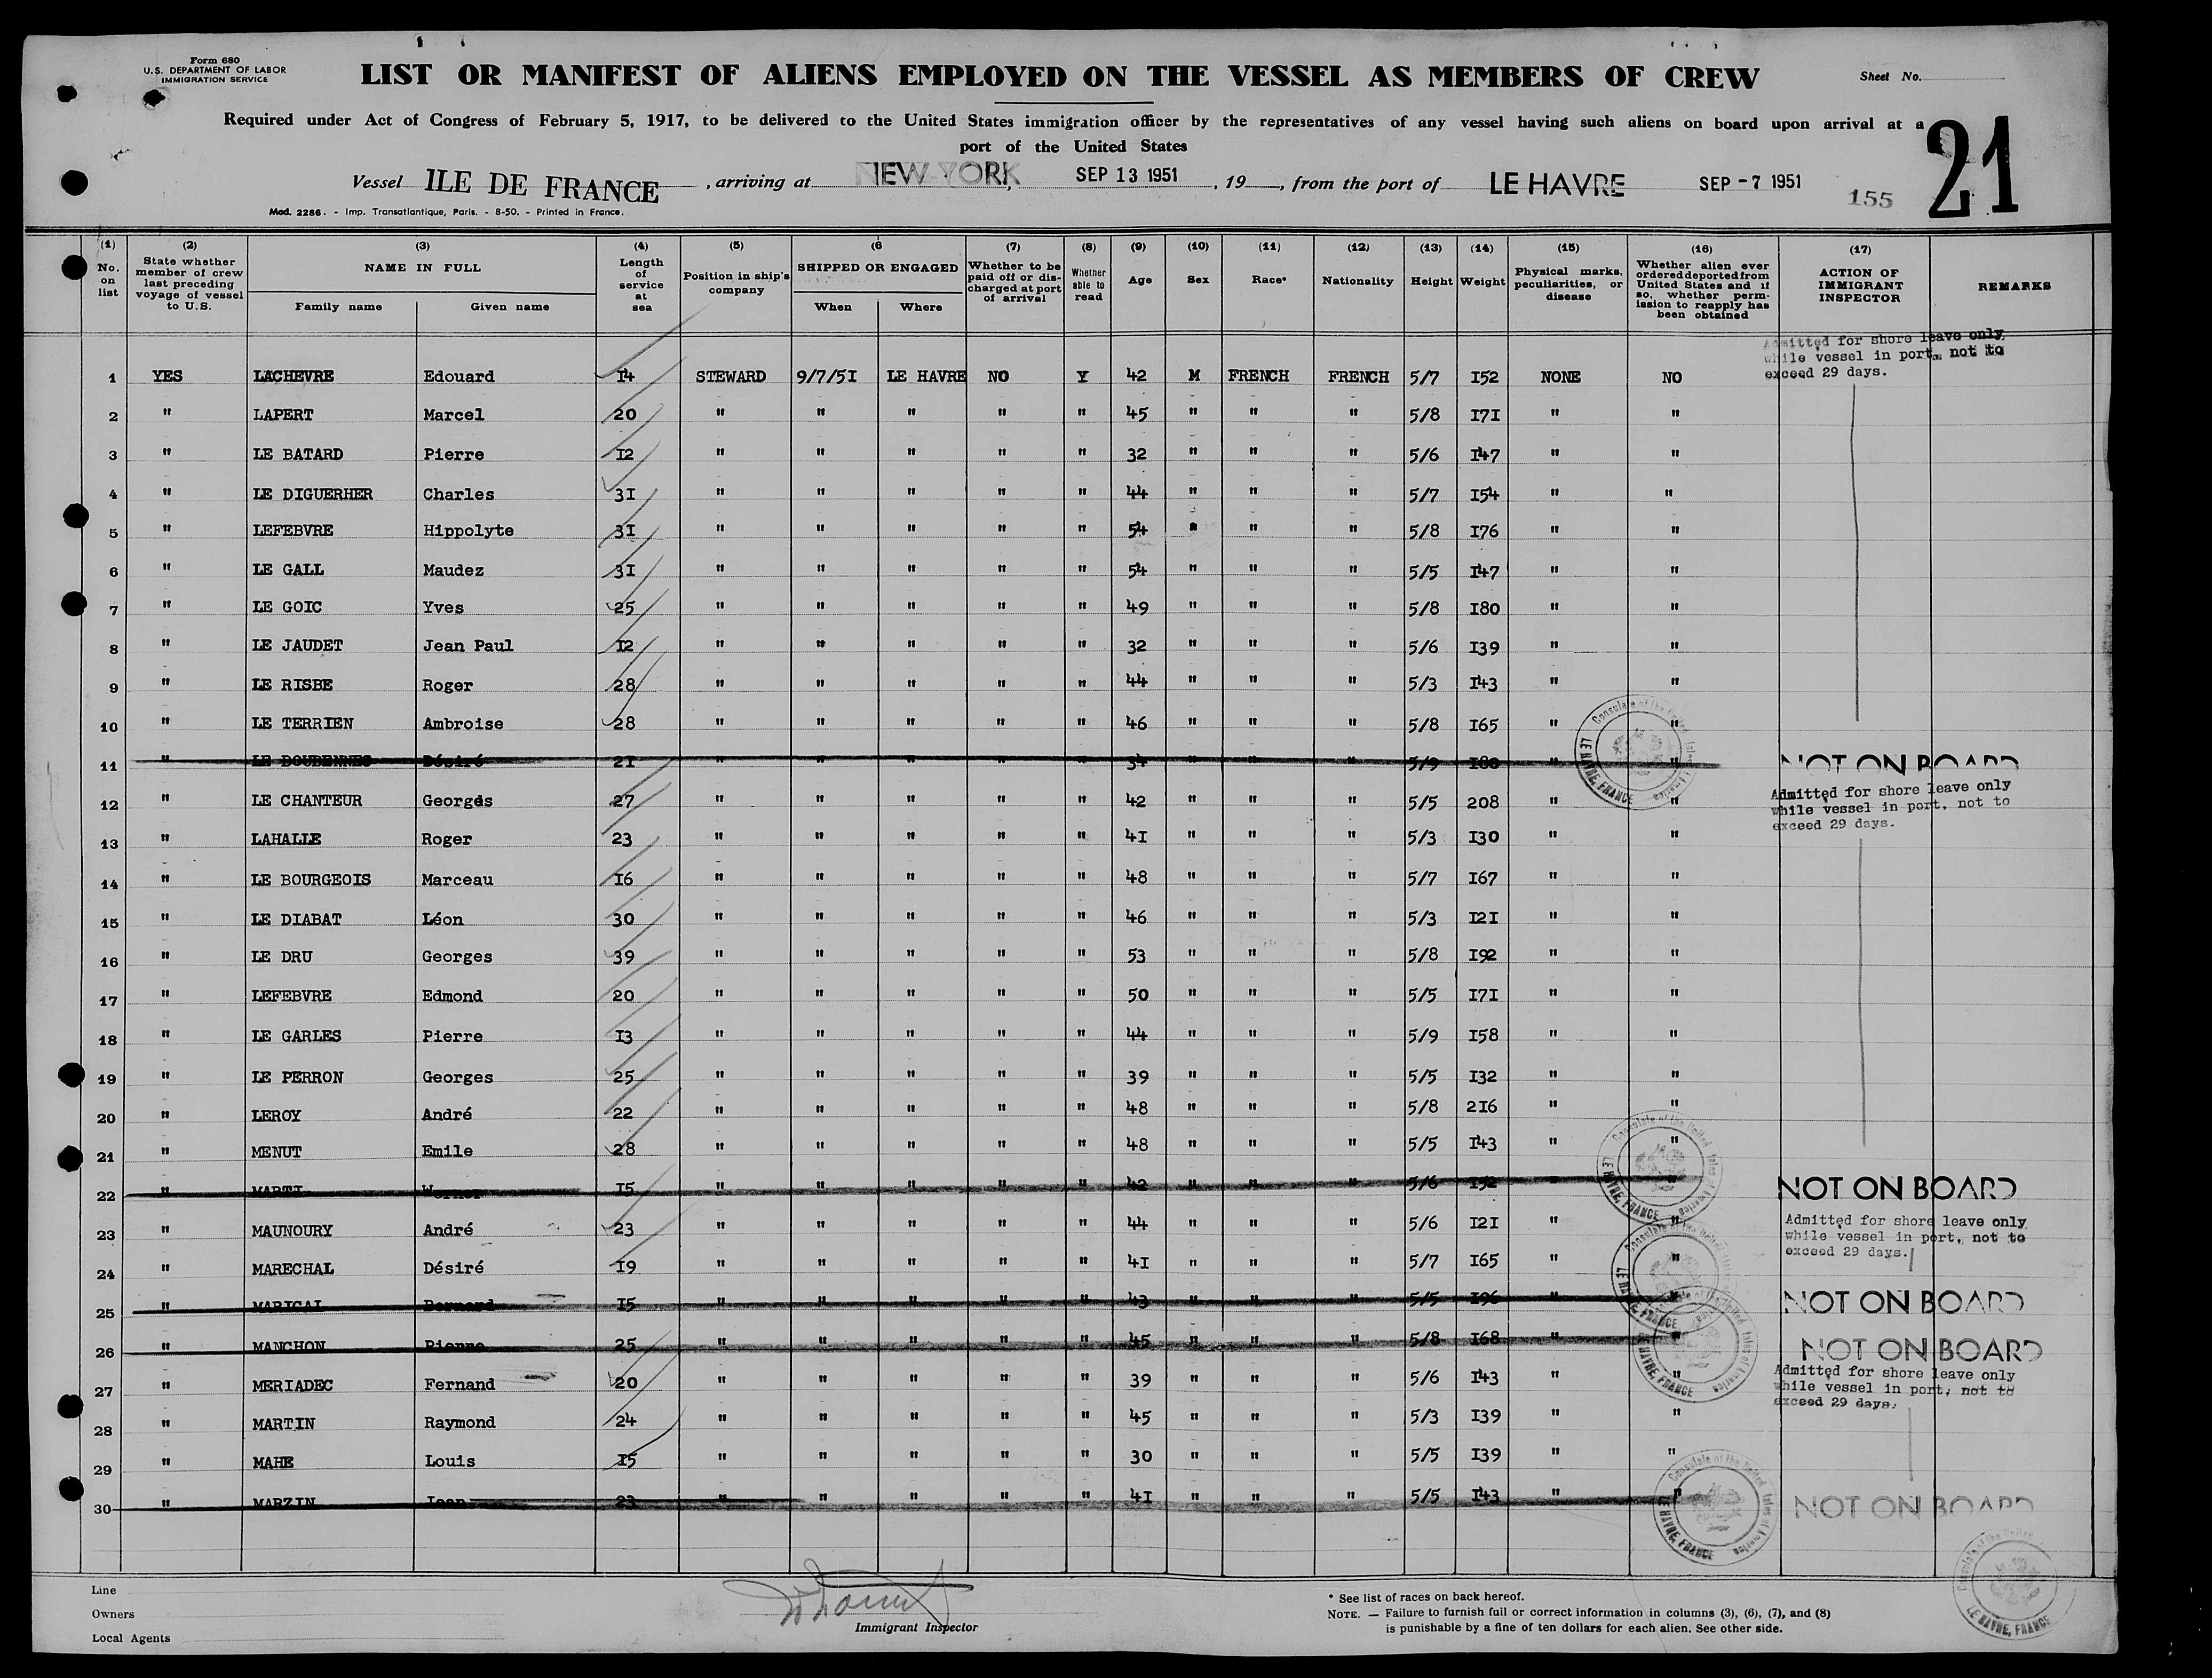 Form 680
U.S. DEPARTMENT OF LABOR
IMMIGRATION SERVICE
LIST OR MANIFEST OF ALIENS EMPLOYED ON THE VESSEL AS MEMBERS OF CREW
Sheet No.
Required under Act of Congress of February 5, 1917, to be delivered to the United States immigration officer by the representatives of any vessel having such aliens on board upon arrival at a
port of the United States
21
Vessel ILE DE FRANCE , arriving at NEW YORK, SEP 13 1951 , 19 , from the port of LE HAVRE SEP -7 1951
155
Mod. 2286. - Imp. Transatlantique, Paris. - 8-50. - Printed in France.
(1) No. on list
(2) State whether member of crew last preceding voyage of vessel to U.S.
(3) NAME IN FULL Family name Given name
(4) Length of service at sea
(5) Position in ship's company
(6 SHIPPED OR ENGAGED When Where
(7) Whether to be paid off or discharged at port of arrival
(8) Whether able to read
(9) Age
(10) Sex
(11) Race*
(12) Nationality
(13) Height
(14) Weight
(15) Physical marks, peculiarities, or disease
(16) Whether alien ever ordered deported from United States and if so, whether permission to reapply has been obtained
(17) ACTION OF IMMIGRANT INSPECTOR
REMARKS
Admitted for shore leave only
while vessel in port, not to
exceed 29 days.
1 YES LACHEVRE Edouard 14 STEWARD 9/7/51 LE HAVRE NO Y 42 M FRENCH FRENCH 5/7 152 NONE NO
2 " LAPERT Marcel 20 " " " " " 45 " " " 5/8 171 " "
3 " LE BATARD Pierre 12 " " " " " 32 " " " 5/6 147 " "
4 " LE DIGUERHER Charles 31 " " " " " 44 " " " 5/7 154 " "
5 " LEFEBVRE Hippolyte 31 " " " " " 54 " " " 5/8 176 " "
6 " LE GALL Maudez 31 " " " " " 54 " " " 5/5 147 " "
7 " LE GOIC Yves 25 " " " " " 49 " " " 5/8 180 " "
8 " LE JAUDET Jean Paul 12 " " " " " 32 " " " 5/6 139 " "
9 " LE RISBE Roger 28 " " " " " 44 " " " 5/3 143 " "
10 " LE TERRIEN Ambroise 28 " " " " " 46 " " " 5/8 165 " "
11 " LE Désiré 21 " " " " " 34 " " " 5/9 180 " " NOT ON BOARD
12 " LE CHANTEUR Georges 27 " " " " " 42 " " " 5/5 208 " "
Admitted for shore leave only
while vessel in port, not to
exceed 29 days.
13 " LAHALLE Roger 23 " " " " " 41 " " " 5/3 130 " "
14 " LE BOURGEOIS Marceau 16 " " " " " 48 " " " 5/7 167 " "
15 " LE DIABAT Léon 30 " " " " " 46 " " " 5/3 121 " "
16 " LE DRU Georges 39 " " " " " 53 " " " 5/8 192 " "
17 " LEFEBVRE Edmond 20 " " " " " 50 " " " 5/5 171 " "
18 " LE GARLES Pierre 13 " " " " " 44 " " " 5/9 158 " "
19 " LE PERRON Georges 25 " " " " " 39 " " " 5/5 132 " "
20 " LEROY André 22 " " " " " 48 " " " 5/8 216 " "
21 " MENUT Emile 28 " " " " " 48 " " " 5/5 143 " "
22 " MARTI Werner 15 " " " " " 42 " " " 5/6 152 " " NOT ON BOARD
23 " MAUNOURY André 23 " " " " " 44 " " " 5/6 121 " "
Admitted for shore leave only
while vessel in port, not to
exceed 29 days.
24 " MARECHAL Désiré 19 " " " " " 41 " " " 5/7 165 " "
25 " MARICAL Bernard 15 " " " " " 43 " " " 5/5 196 " " NOT ON BOARD
26 " MANCHON Pierre 25 " " " " " 45 " " " 5/8 168 " " NOT ON BOARD
27 " MERIADEC Fernand 20 " " " " " 39 " " " 5/6 143 " "
Admitted for shore leave only
while vessel in port, not to
exceed 29 days.
28 " MARTIN Raymond 24 " " " " " 45 " " " 5/3 139 " "
29 " MAHE Louis 15 " " " " " 30 " " " 5/5 139 " "
30 " MARZIN Jean 23 " " " " " 41 " " " 5/5 143 " " NOT ON BOARD
Consulate of the United States of America LE HAVRE, FRANCE
Consulate of the United States of America LE HAVRE, FRANCE
Consulate of the United States of America LE HAVRE, FRANCE
Consulate of the United States of America LE HAVRE, FRANCE
Consulate of the United States of America LE HAVRE, FRANCE
Consulate of the United LE HAVRE, FRANCE
Line
Owners
Local Agents
Immigrant Inspector
* See list of races on back hereof.
NOTE. — Failure to furnish full or correct information in columns (3), (6), (7), and (8)
is punishable by a fine of ten dollars for each alien. See other side.